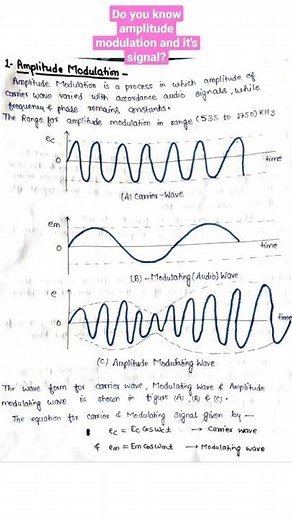 Do you know
amplitude
modulation and it's
signal?
1- Amplitude Modulation -
Amplitude Modulation is a process in which amplitude of
carrier wave varied with accordance audio signals, while
frequency & phase remains constants.
The Range for amplitude modulation in range (535 to 1750) KHz
ec
0
time
(A) Carrier-Wave
em
0
time
(B) - Modulating (Audio) Wave
e
0
time
(C) Amplitude Modulating Wave
The wave form for carrier wave, Modulating Wave & Amplitude
modulating wave is shown in figure (A), (B) & (C).
The equation for carrier & Modulating signal given by —
ec = Ec Cos Wct → Carrier wave
& em = Em Cos Wmt → Modulating wave